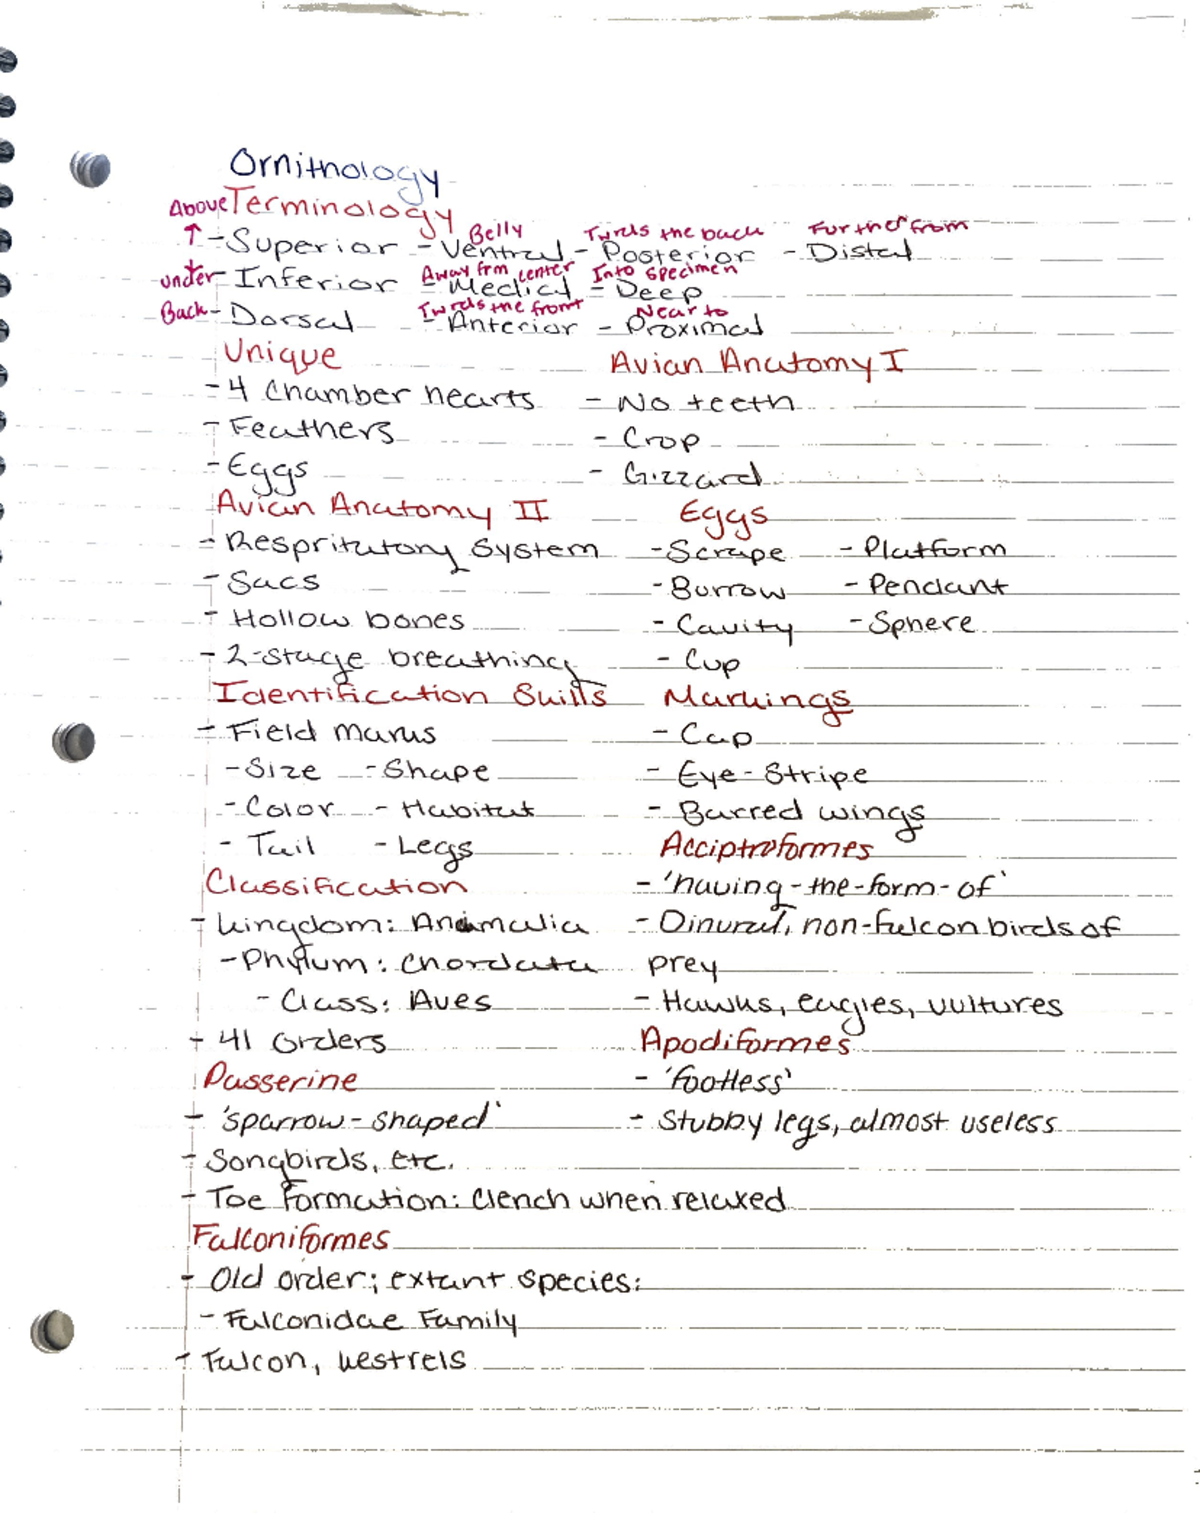 Ornithology
Above Terminology
Belly Twrds the back Further from
↑ - Superior - Ventral - Posterior - Distal
Away frm center Into specimen
under - Inferior - Medical - Deep
Twrds the front Near to
Back - Dorsal - Anterior - Proximal
Unique Avian Anatomy I
- 4 Chamber hearts - No teeth
- Feathers - Crop
- Eggs - Gizzard
Avian Anatomy II Eggs
- Respritutory System - Scrape - Platform
- Sacs - Burrow - Pendant
- Hollow bones - Cavity - Sphere
- 2-stage breathing - Cup
Identification Skills Markings
- Field marks - Cap
- Size - Shape - Eye-Stripe
- Color - Habitat - Barred wings
- Tail - Legs Acciptroformes
Classification - 'having-the-form-of'
- kingdom: Animalia - Dinural, non-falcon birds of
- Phylum: Chordata prey
- Class: Aves - Hawks, eagles, vultures
- 41 Orders Apodiformes
Passerine - 'footless'
- 'sparrow-shaped' - Stubby legs, almost useless
- Songbirds, etc.
- Toe Formation: Clench when relaxed
Falconiformes
- Old order; extant species:
- Falconidae Family
- Falcon, kestrels